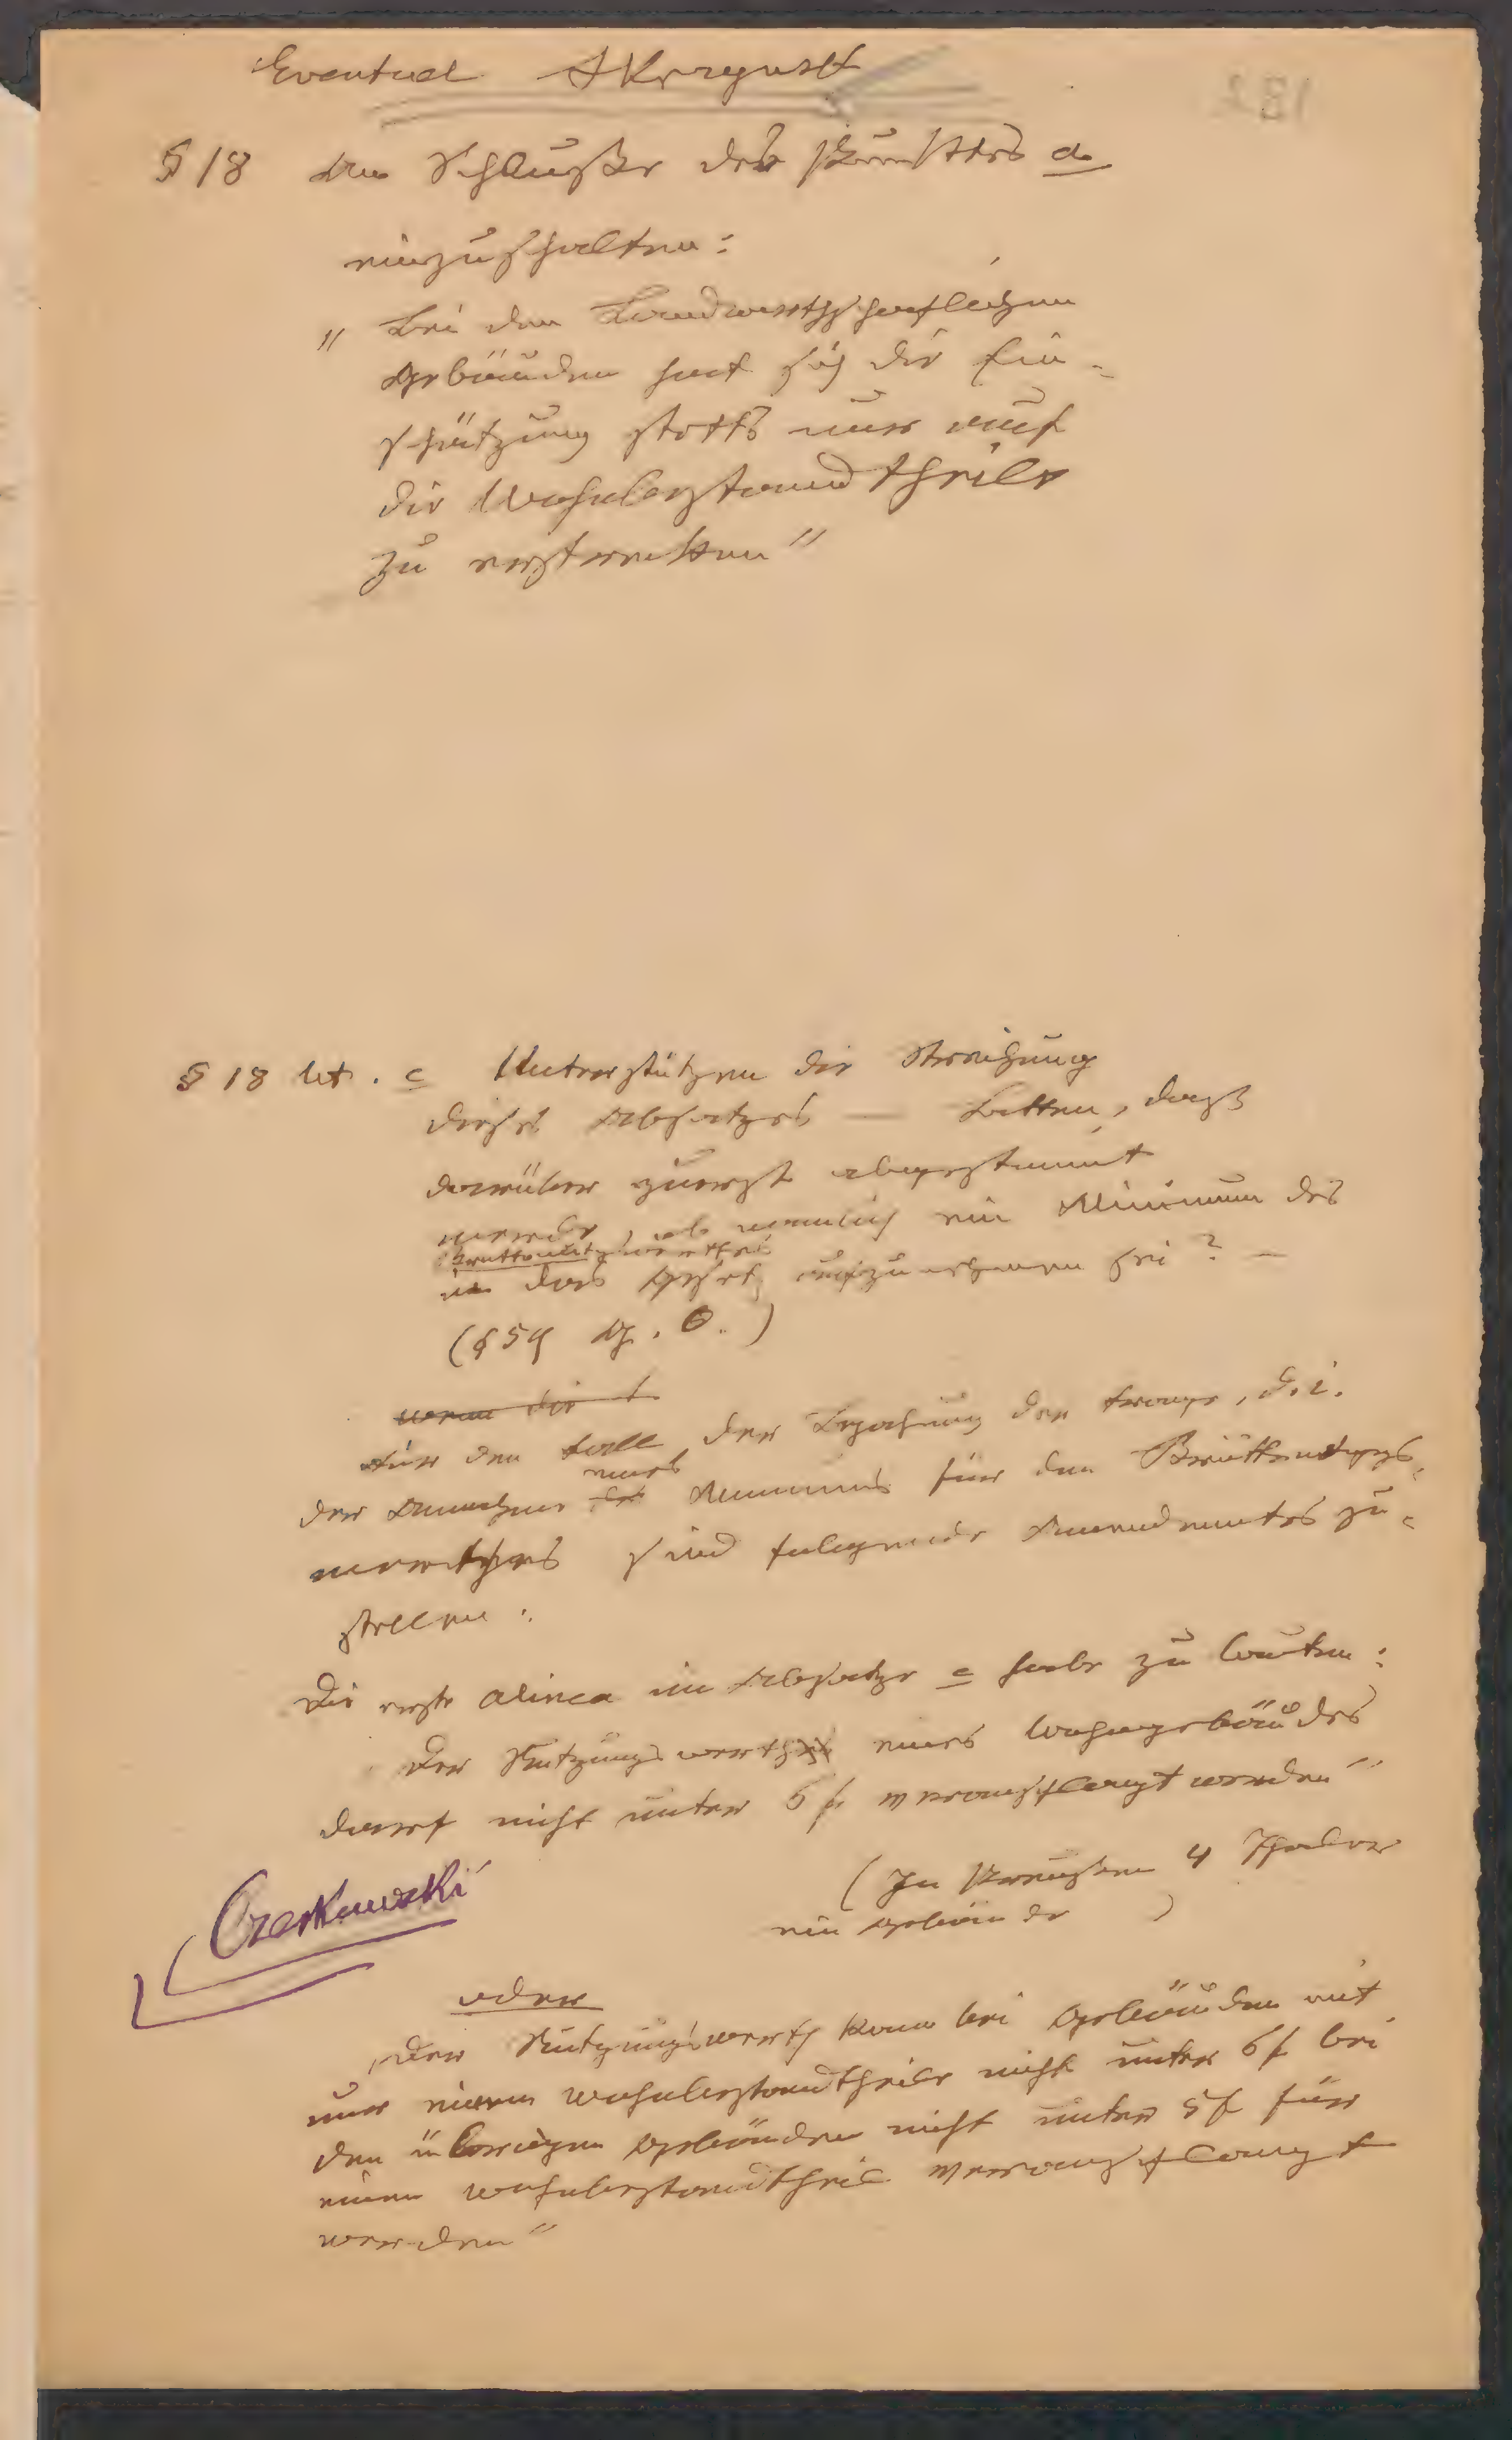 Eventuel
§ 18 am Schluße des Punktes d
einzuschalten:
„ Bei den Landwirthschaftlichen
Gebäuden hat sich die Ein-
schätzung stetts nur auf
die Wohnbestandtheile
zu erstrecken "
§ 18 lit. c Unterstützen die Streichung
dieses Absatzes — Bitten, dass
darüber zuerst abgestimmt
werde, ob nämlich ein Minimum des
Bruttonutzwerthes
in das Gesetz aufzunehmen sei ? —
(§ 59 G. O.)
wenn die
Für den Fall der Bejahung der Frage, d. i.
der Annahme eines Minimums für den Bruttonutzungs-
werthes sind folgende Amendments zu-
stellen:
Die erste alinea im Absatze c habe zu lauten:
Der Nutzungswerth eines Wohngebäudes
darf nicht unter 6 f veranschlagt werden"
(In Preußen 4 Thaler
ein Gebäude )
Czerkawski
oder
„Der Nutzungswerth kann bei Gebäuden mit
nur einem Wohnbestandtheile nicht unter 6 f bei
den übrigen Gebäuden nicht unter 5 f für
einen Wohnbestandtheil veranschlagt
werden"